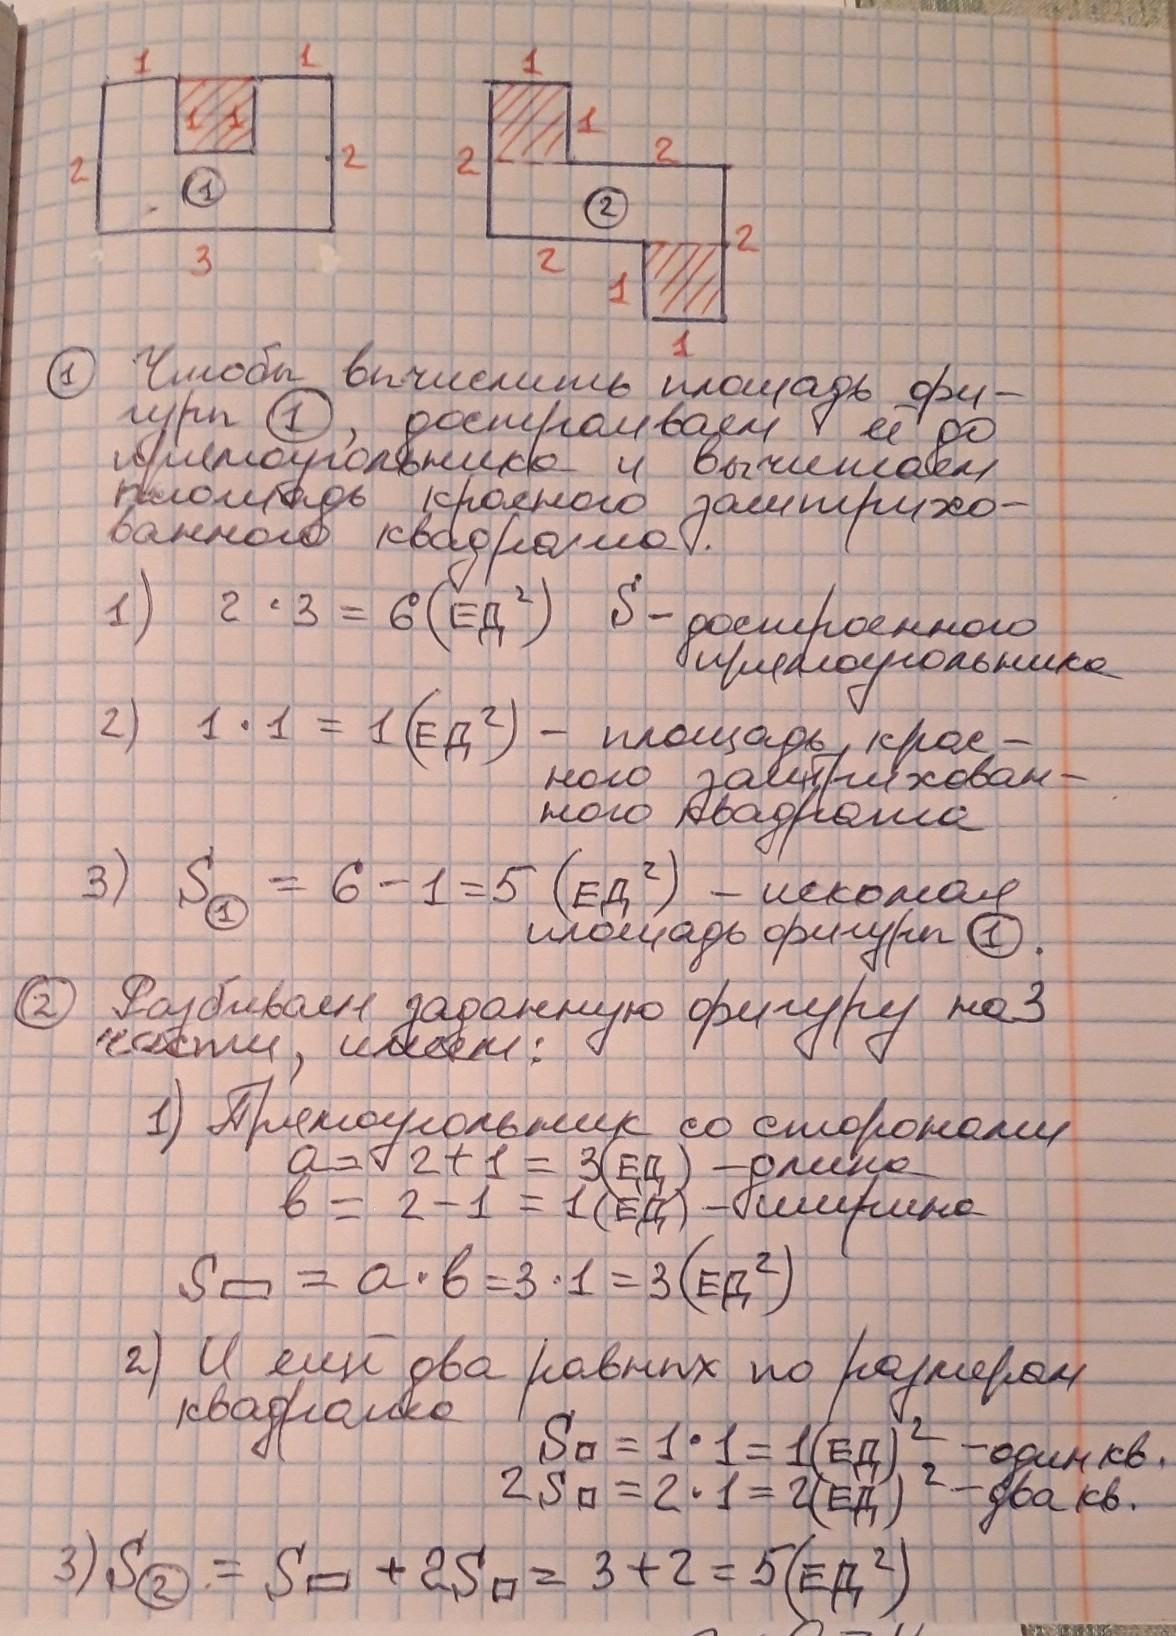 1 1 1
1 1 1
2 2 2 2
① ②
3 2 1 2
1
① Чтобы вычислить площадь фи-
гуры ①, достраиваем её до
прямоугольника и вычитаем
площадь красного заштрихо-
ванного квадрата.
1) 2 · 3 = 6 (ЕД²) S – достроенного
прямоугольника
2) 1 · 1 = 1 (ЕД²) – площадь крас-
ного заштрихован-
ного квадрата
3) S① = 6 – 1 = 5 (ЕД²) – искомая
площадь фигуры ①.
② Разбиваем заданную фигуру на 3
части, имеем:
1) Прямоугольник со сторонами
a = 2 + 1 = 3 (ЕД) – длина
в = 2 – 1 = 1 (ЕД) – ширина
S▭ = a · в = 3 · 1 = 3 (ЕД²)
2) И ещё два равных по размерам
квадрата
S□ = 1 · 1 = 1 (ЕД)² – один кв.
2S□ = 2 · 1 = 2 (ЕД)² – два кв.
3) S② = S▭ + 2S□ = 3 + 2 = 5 (ЕД²)